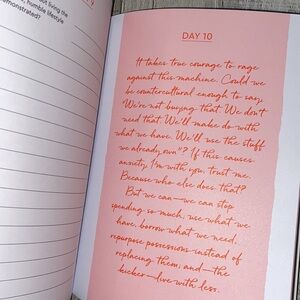 out living the
, humble lifestyle
emonstrated?
DAY 10
It takes true courage to rage
against this machine. Could we
be countercultural enough to say,
We're not buying that. We don't
need that. We'll make do with
what we have. We'll use the stuff
we already own"? If this causes
anxiety, I'm with you, trust me.
Because who else does that?
But we can—we can stop
spending so much, use what we
have, borrow what we need,
repurpose possessions instead of
replacing them, and—the
kicker—live with less.